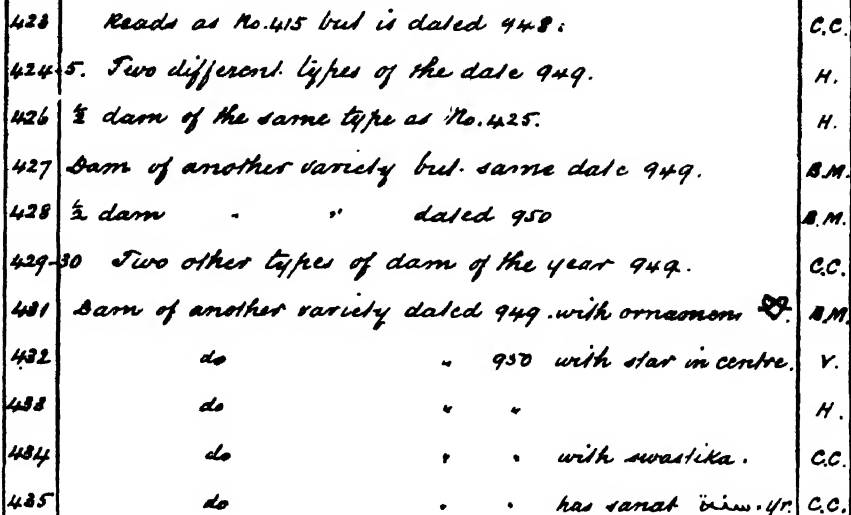 423 Reads as No. 415 but is dated 948. C.C.
424-5. Two different types of the date 949. H.
426 ½ dam of the same type as No. 425. H.
427 Dam of another variety but same date 949. B.M.
428 ½ dam " " dated 950 B.M.
429-30 Two other types of dam of the year 949. C.C.
431 Dam of another variety dated 949 with ornament B.M.
432 do " 950 with star in centre. V.
433 do " " H.
434 do " " with swastika. C.C.
435 do " " has sanat yr. C.C.